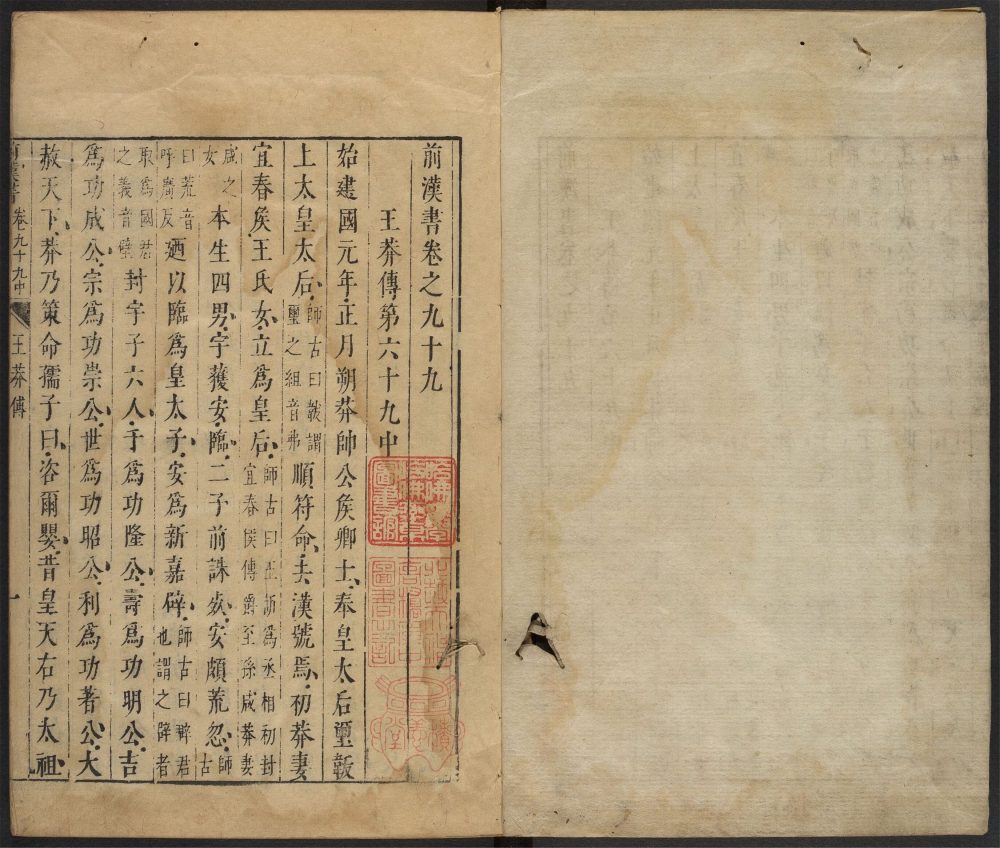 前漢書卷之九十九
王莽傳第六十九中
始建國元年正月朔莽帥公侯卿士奉皇太后璽韍
上太皇太后師古曰韍謂璽之組音弗順符命去漢號焉初莽妻
宜春侯王氏女立爲皇后師古曰王訢爲丞相初封宜春侯傳爵至孫咸莽妻
咸之女本生四男宇獲安臨二子前誅死安頗荒忽師古
曰荒音呼廣反廼以臨爲皇太子安爲新嘉辟師古曰辟君也謂之辟者
取爲國君之義音璧封宇子六人千爲功隆公壽爲功明公吉
爲功成公宗爲功崇公世爲功昭公利爲功著公大
赦天下莽乃策命孺子曰咨爾嬰昔皇天右乃太祖
前漢書 卷九十九中 王莽傳 一
哈佛大學
哈佛燕京
圖書館